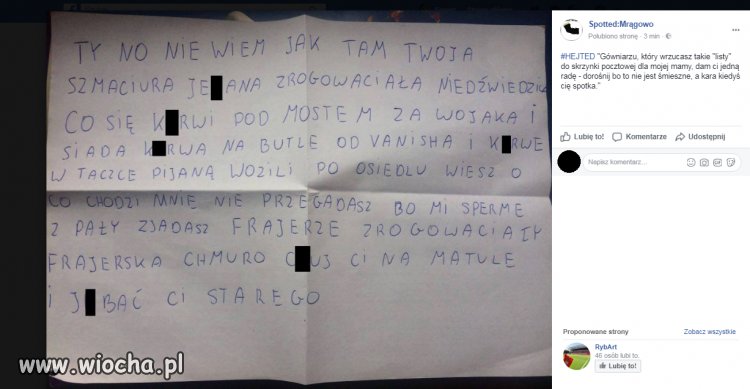 TY NO NIE WIEM JAK TAM TWOJA
SZMACIURA JE ANA ZROGOWACIAŁA NIEDŹWIEDZICA
CO SIĘ K RWI POD MOSTEM ZA WOJAKA I
SIADA K RWA NA BUTLE OD VANISHA I K RWE
W TACZCE PIJANĄ WOZILI PO OSIEDLU WIESZ O
CO CHODZI MNIE NIE PRZEGADASZ BO MI SPERME
Z PAŁY ZJADASZ FRAJERZE ZROGOWACIAŁY
FRAJERSKA CHMURO C UJ CI NA MATULE
I J BAĆ CI STAREGO
www.wiocha.pl
Spotted:Mrągowo
Polubiono stronę · 3 min ·
#HEJTED "Gówniarzu, który wrzucasz takie "listy"
do skrzynki pocztowej dla mojej mamy, dam ci jedną
radę - dorośnij bo to nie jest śmieszne, a kara kiedyś
cię spotka."
Lubię to! Komentarze Udostępnij
Napisz komentarz...
Proponowane strony Zobacz wszystkie
RybArt
46 osób lubi to.
Lubię to!